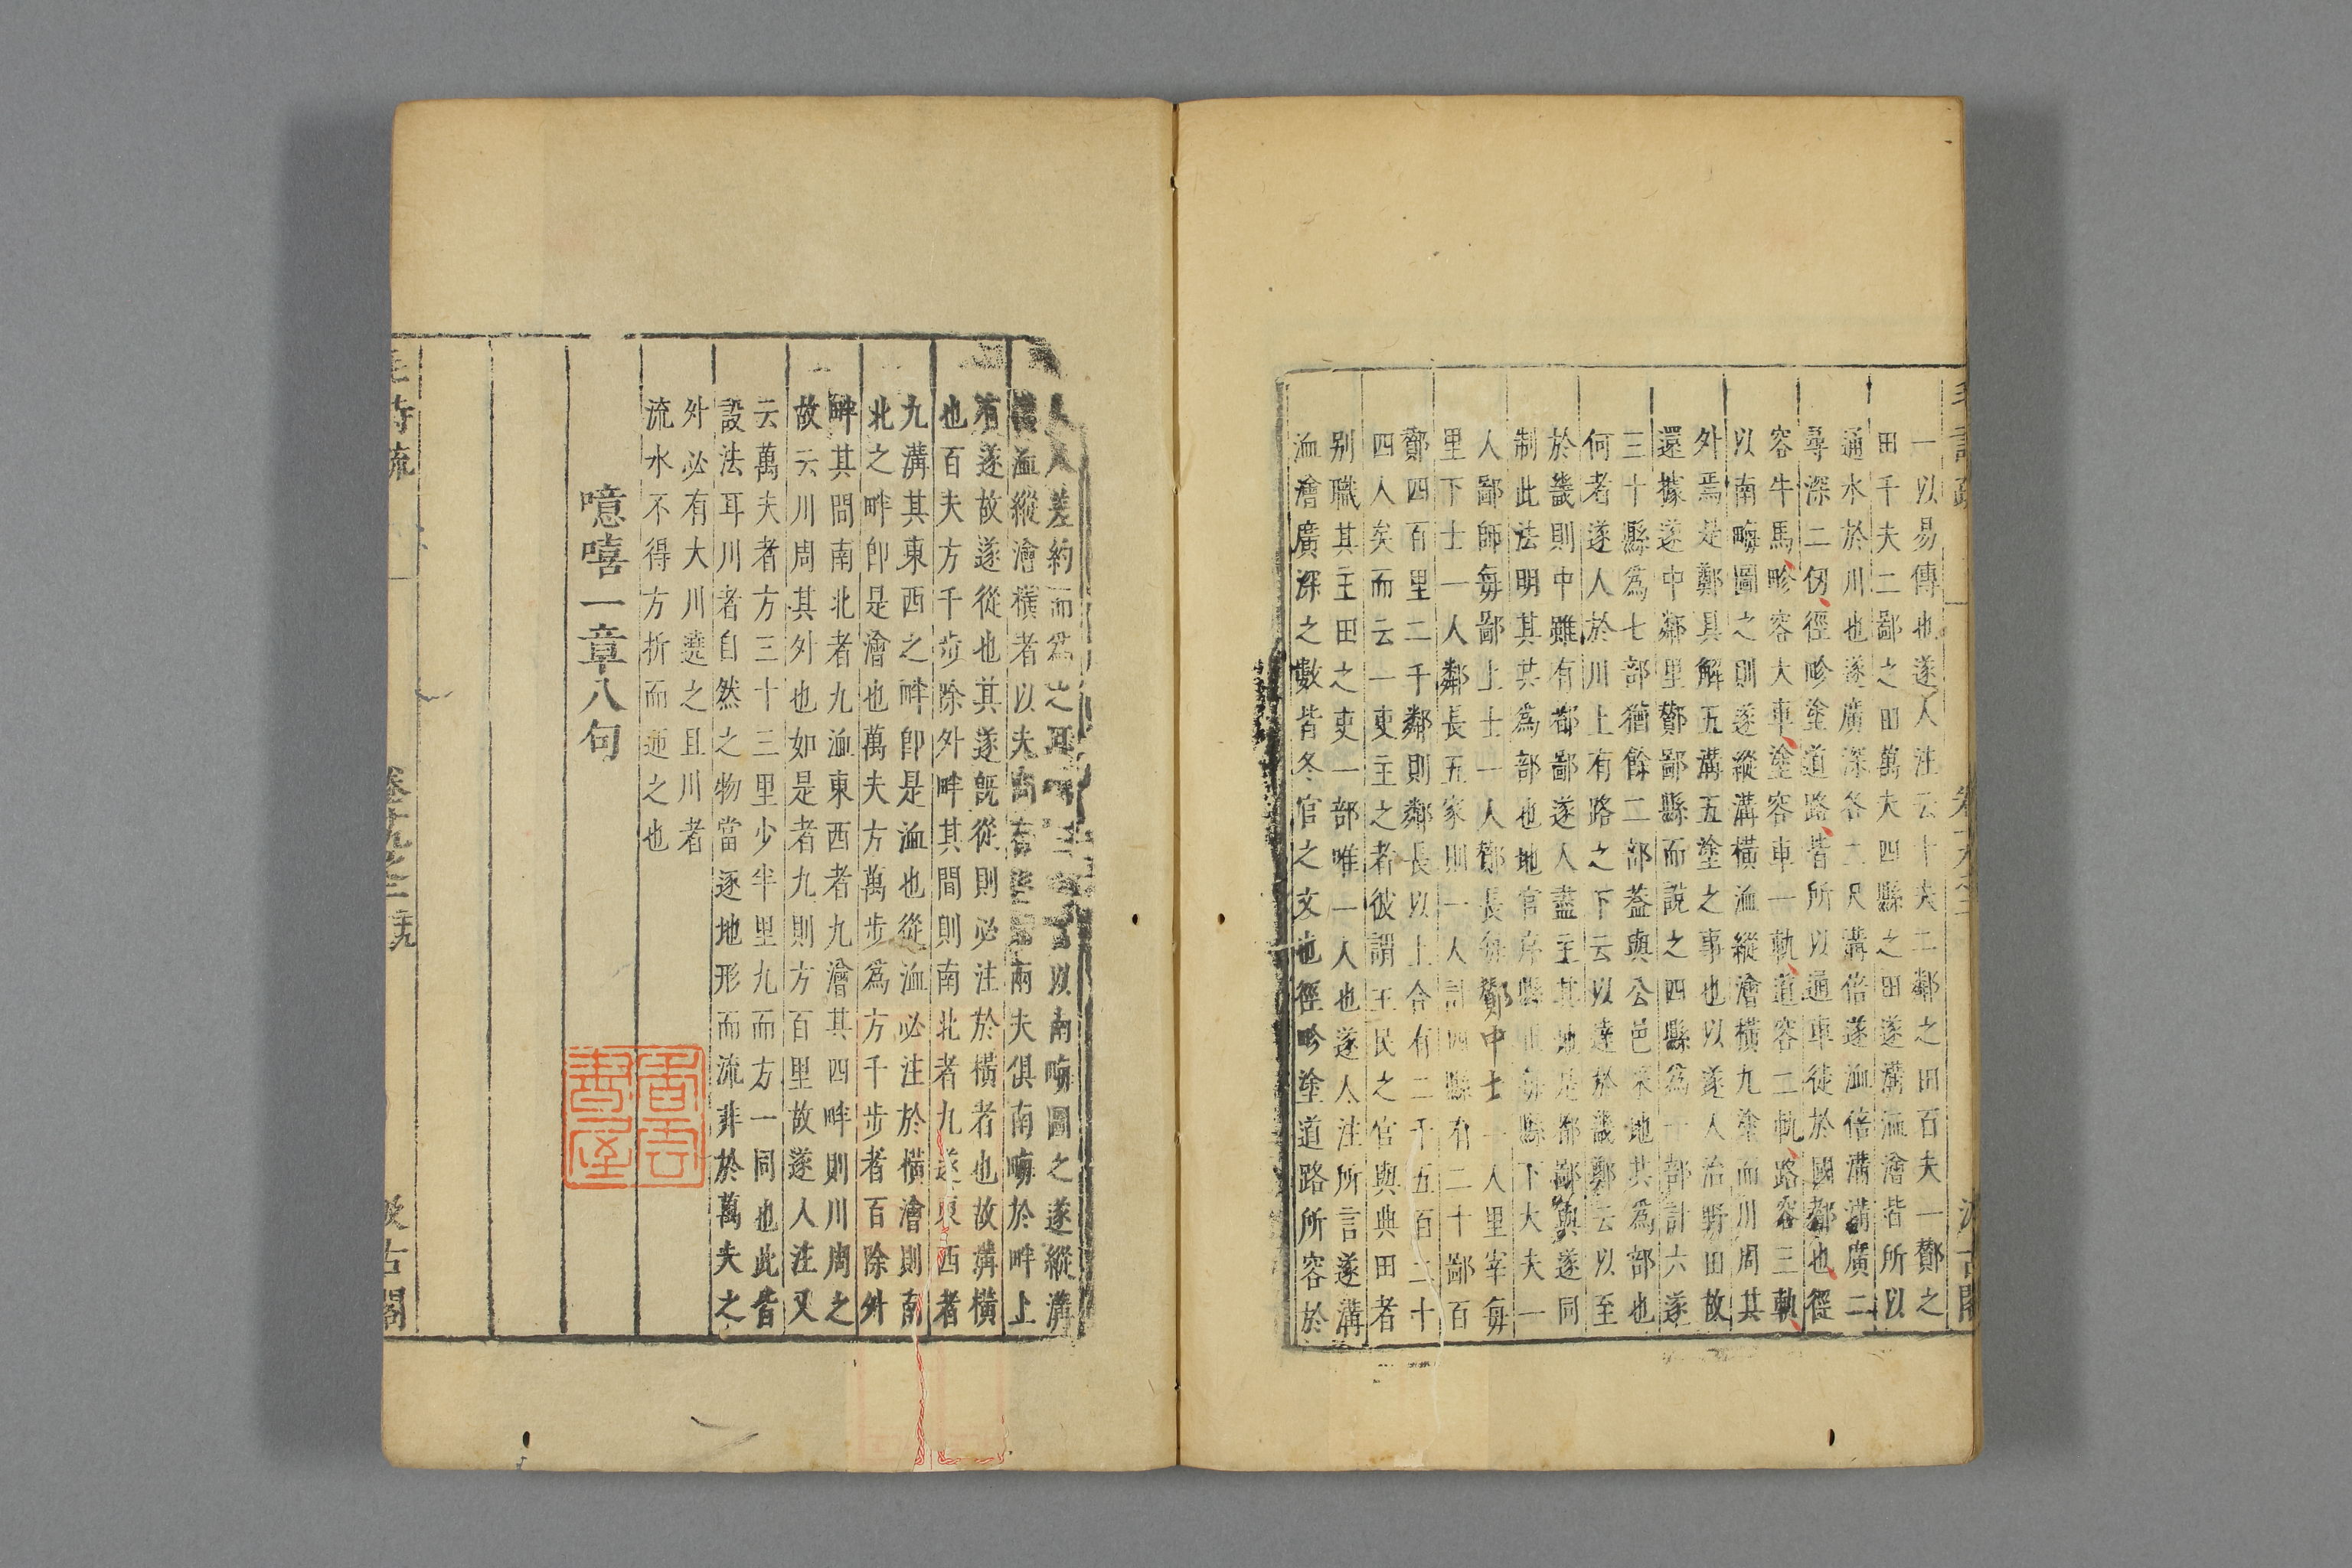 一以易傳也遂人注云十夫二鄰之田百夫一酇之
田千夫二鄙之田萬夫四縣之田遂溝洫澮皆所以
通水於川也遂廣深各二尺溝倍遂洫倍溝溝廣二
尋深二仞徑畛塗道路皆所以通車徒於國都也徑
容牛馬畛容大車塗容車一軌道容二軌路容三軌
以南畮圖之則遂縱溝橫洫縱澮橫九塗而川周其
外焉是鄭具解五溝五塗之事也以遂人治野田故
還據遂中鄰里酇鄙縣而說之四縣爲一部計六遂
三十縣爲七部猶餘二部葢與公邑采地共爲部也
何者遂人於川上有路之下云以達於畿鄭云以至
於畿則中雖有都鄙遂人盡主其地是都鄙與遂同
制此法明其共爲部也地官序縣正每縣下大夫一
人鄙師每鄙上士一人酇長每酇中士一人里宰每
里下士一人鄰長五家則一人計四縣有二十鄙百
酇四百里二千鄰則鄰長以上合有二千五百二十
四人矣而云一吏主之者彼謂主民之官與典田者
别職其主田之吏一部唯一人也遂人注所言遂溝
洫澮廣深之數皆冬官之文也徑畛塗道路所容於
人差約而爲之耳 以南畮圖之遂縱溝
橫洫縱澮橫者以夫 兩夫俱南畮於畔上
有遂故遂從也其遂旣從則必注於橫者也故溝橫
也百夫方千步除外畔其間則南北者九遂東西者
九溝其東西之畔卽是洫也從洫必注於橫澮則南
北之畔卽是澮也萬夫方萬步爲方千步者百除外
畔其間南北者九洫東西者九澮其四畔則川周之
故云川周其外也如是者九則方百里故遂人注又
云萬夫者方三十三里少半里九而方一同也此皆
設法耳川者自然之物當逐地形而流非於萬夫之
外必有大川遶之且川者
流水不得方折而迊之也
噫嘻一章八句
毛詩疏 卷十九之二 汲古閣